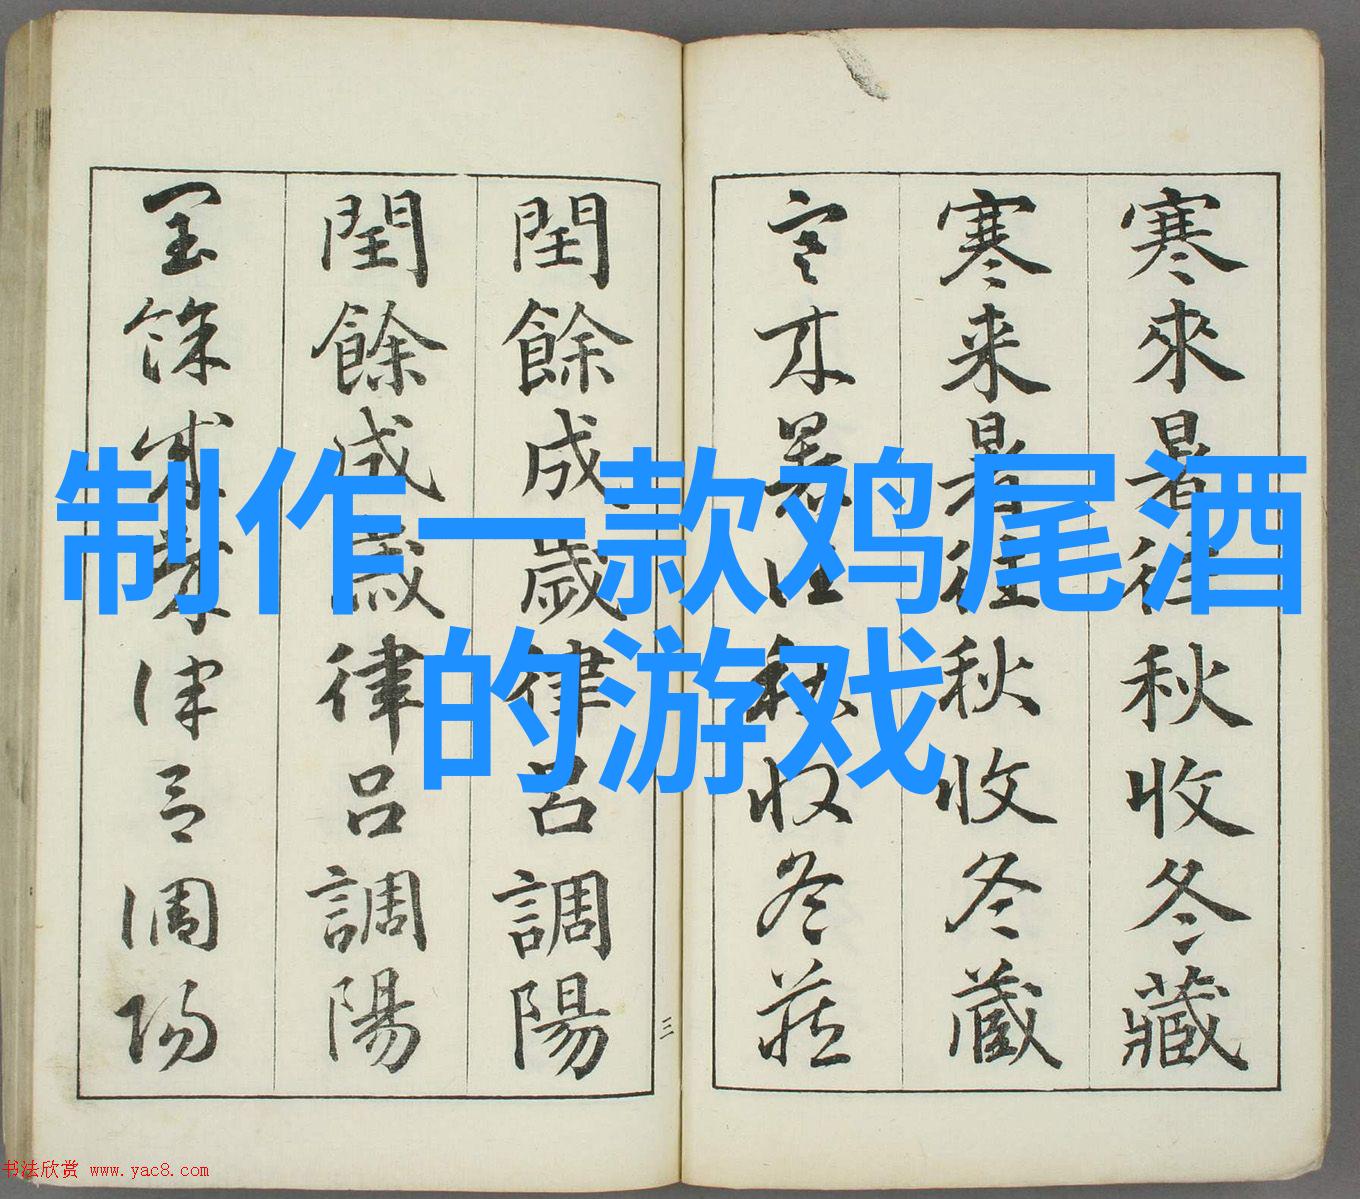 寒來暑往秋收冬藏
寒来暑往秋收冬蔵
寒来暑往秋收冬蔵
三
閏餘成歲律呂調陽
閏餘成歳律呂調陽
閏餘成歲律呂調陽
制作一款鸡尾酒
的游戏
书法欣赏 www.yac8.com